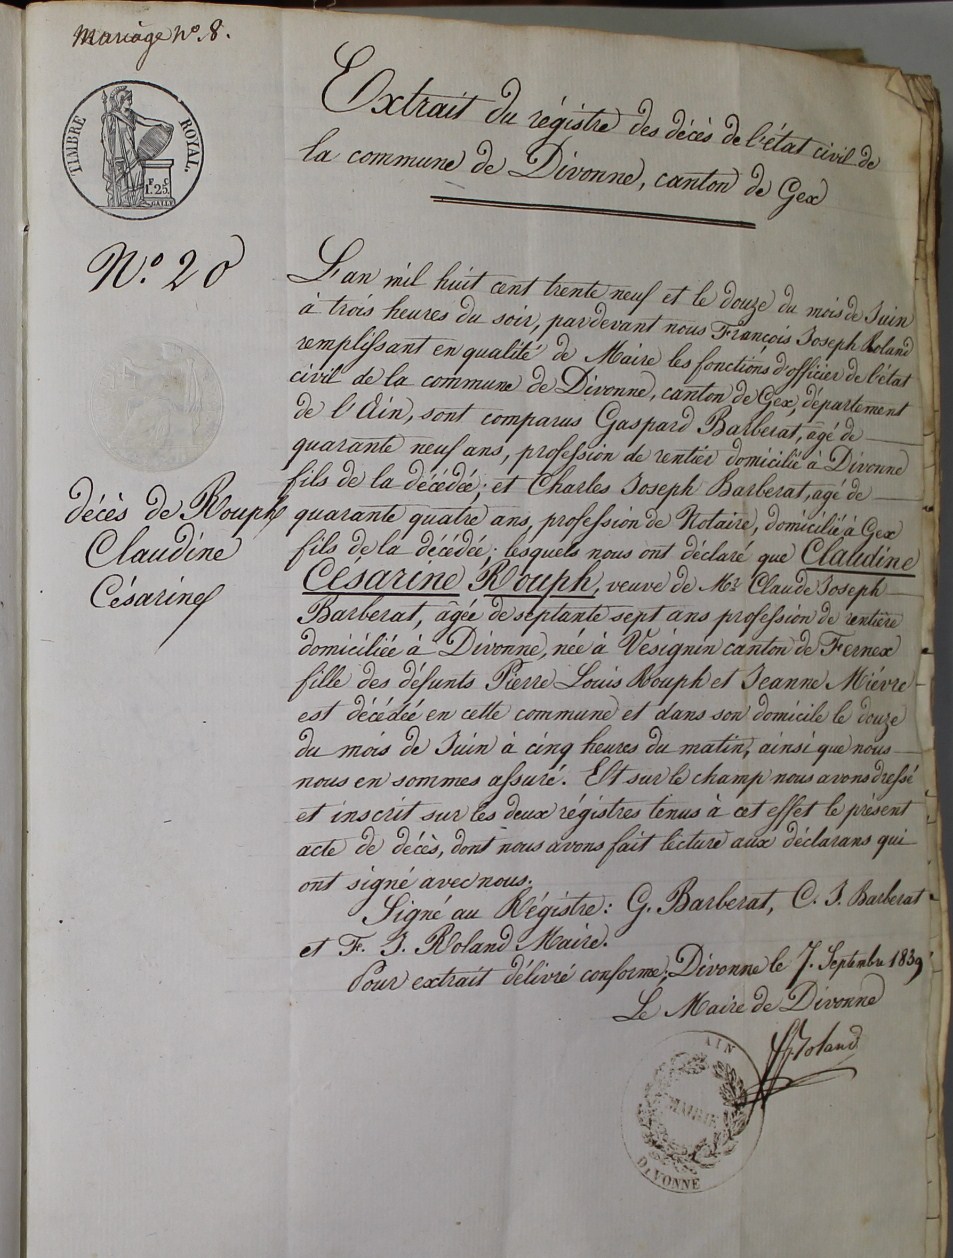 Mariage n.o 8.
TIMBRE ROYAL.
F. C.
1. 25.
Extrait du régistre des décès de l'état civil de
la commune de Divonne, canton de Gex
N.o 20
L'an mil huit cent trente neuf et le douze du mois de Juin
à trois heures du soir, pardevant nous François Joseph Roland
remplissant en qualité de Maire les fonctions d'officier de l'état
civil de la commune de Divonne, canton de Gex, département
de l'Ain, sont comparus Gaspard Barberat, agé de
quarante neuf ans, profession de rentier domicilié à Divonne
fils de la décédée; et Charles Joseph Barberat, agé de
quarante quatre ans, profession de Notaire, domicilié à Gex
fils de la décédée; lesquels nous ont déclaré que Claudine
Césarine Rouph, veuve de Mr Claude Joseph
Barberat, âgée de septante sept ans profession de rentière
domiciliée à Divonne, née à Vésignin canton de Fernex
fille des défunts Pierre Louis Rouph et Jeanne Mièvre
est décédée en cette commune et dans son domicile le douze
du mois de Juin à cinq heures du matin, ainsi que nous
nous en sommes assuré. Et sur le champ nous avons dressé
et inscrit sur les deux régistres tenus à cet effet le présent
acte de décès, dont nous avons fait lecture aux déclarans qui
ont signé avec nous.
Signé au Régistre: G. Barberat, C. J. Barberat
et F. J. Roland Maire.
Pour extrait délivré conforme, Divonne le 7. Septembre 1839
Le Maire de Divonne
Roland
décès de Rouph
Claudine
Césarine
AIN
MAIRIE
DIVONNE